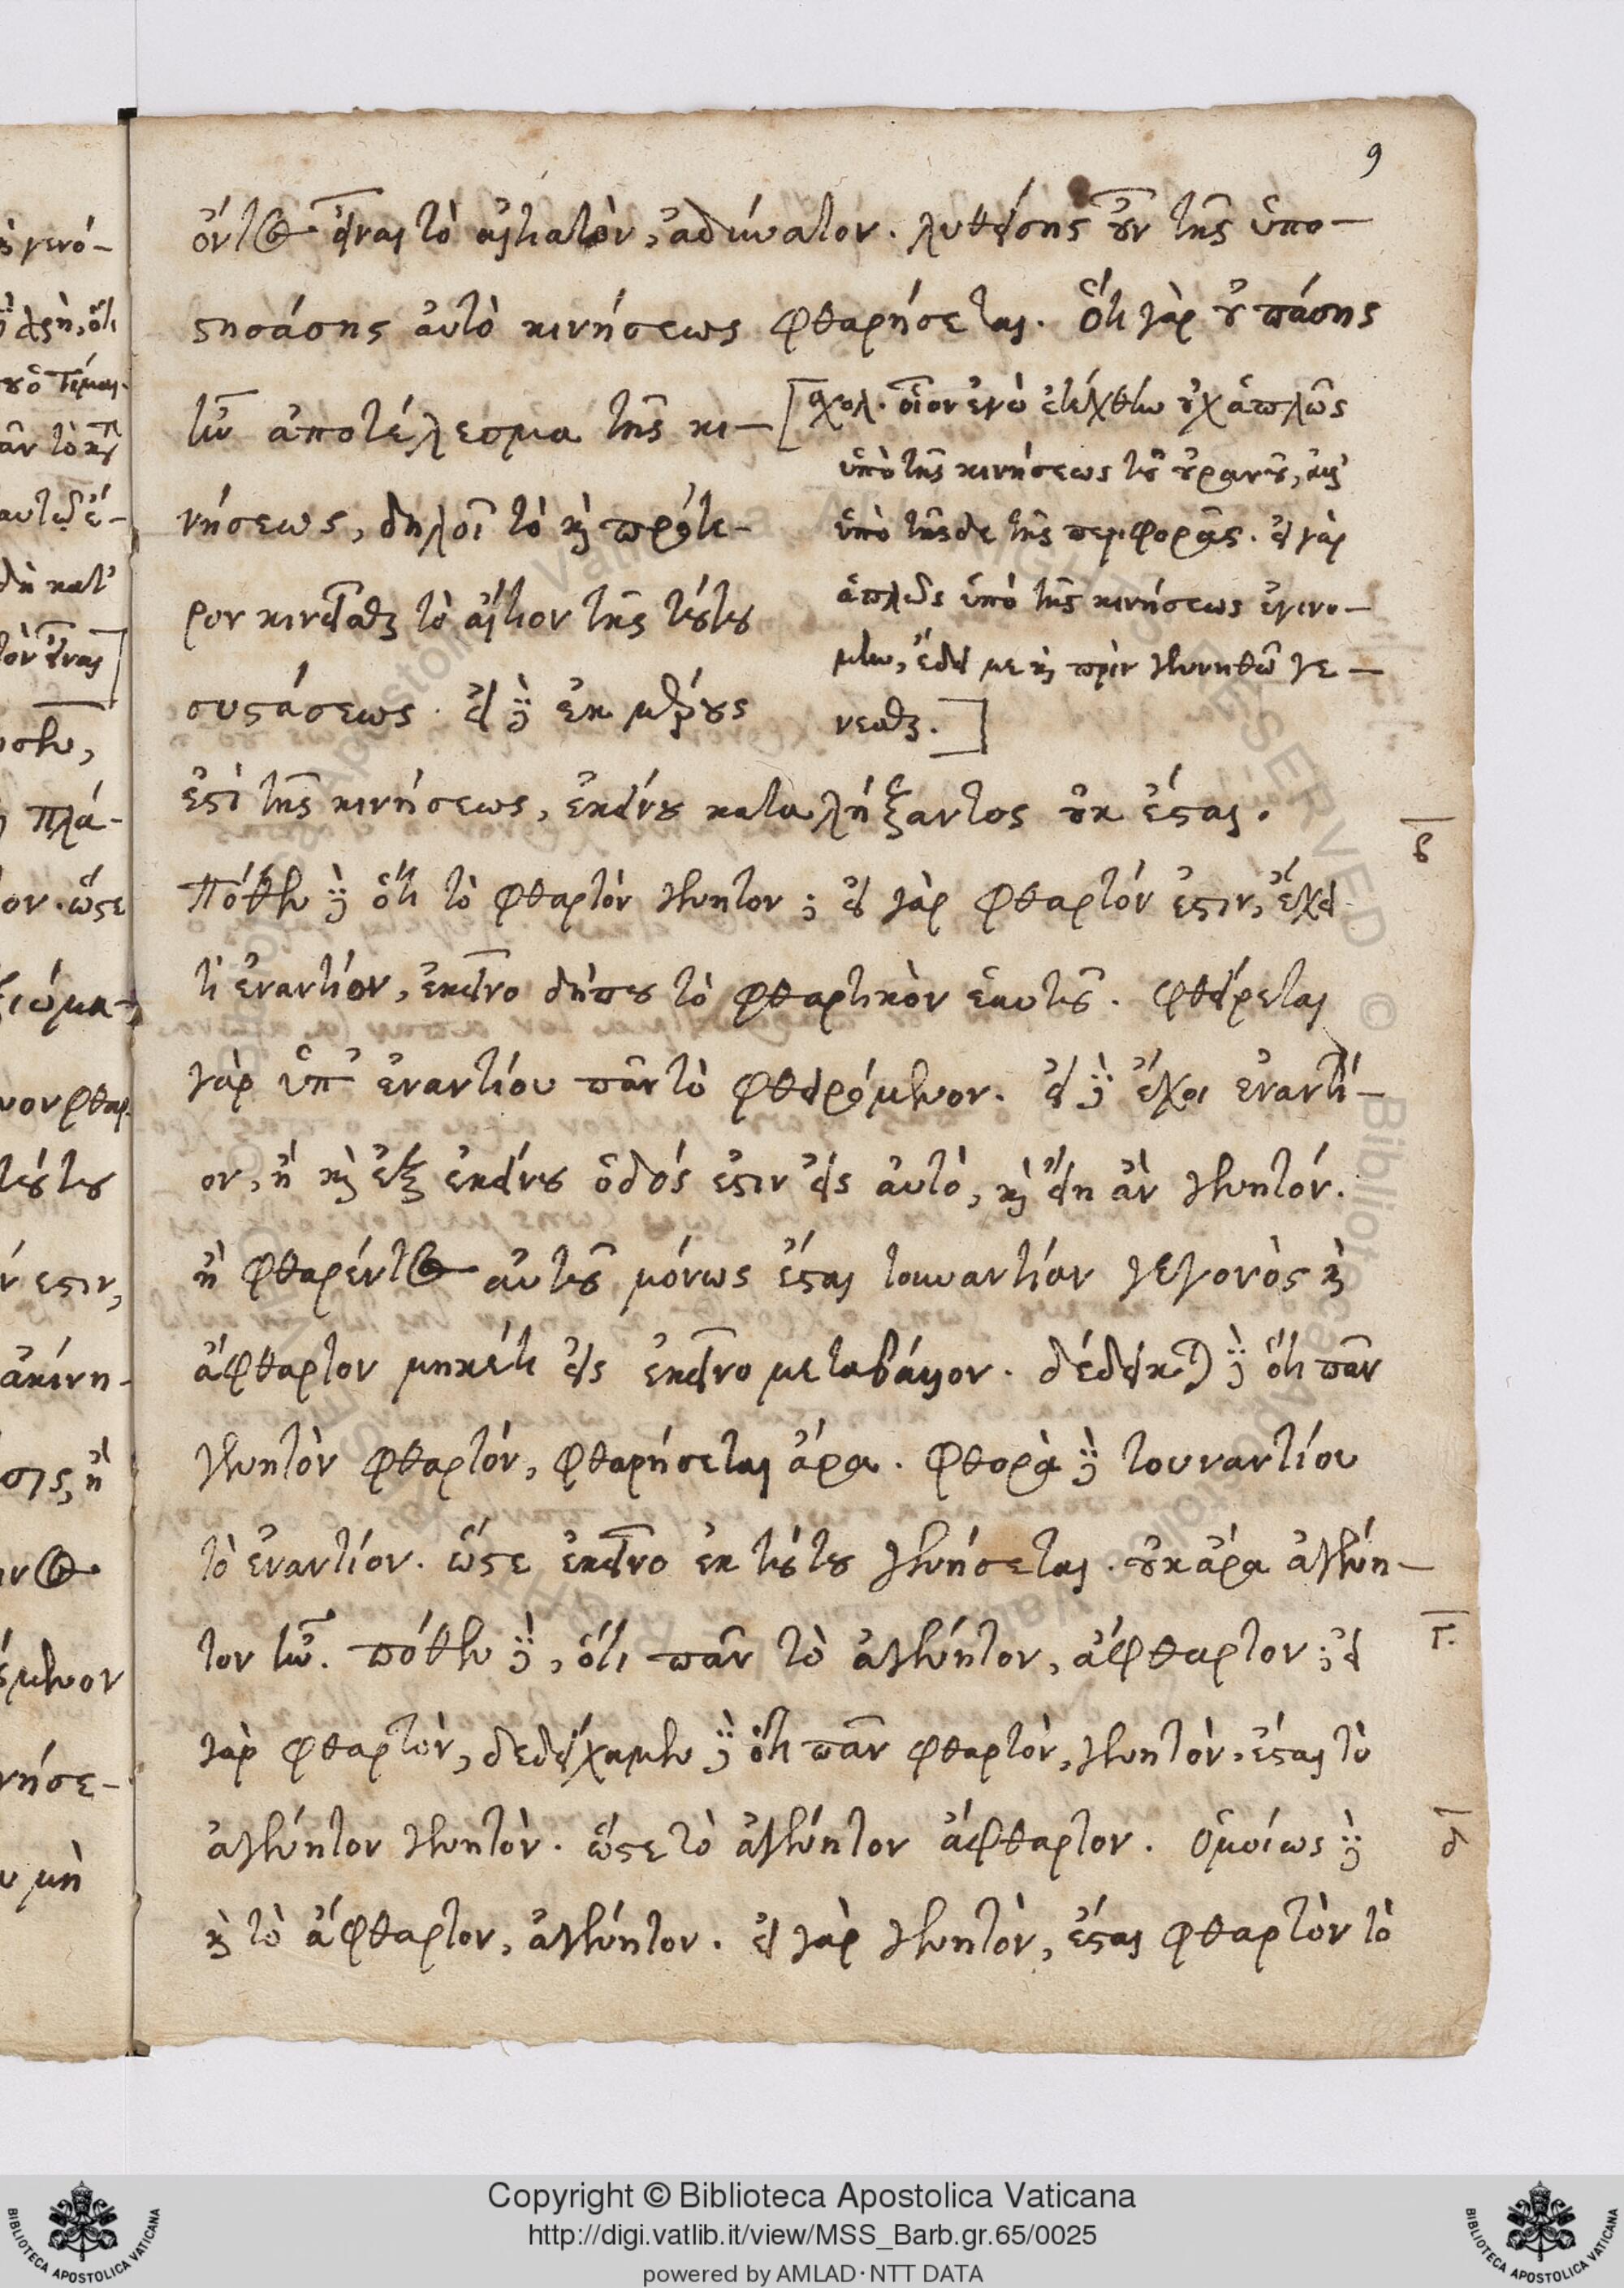 9
όντος εἶναι τὸ αἰτιατὸν, ἀδύνατον. λυθείσης οὖν τῆς ὑπο-
στησάσης αὐτὸ κινήσεως φθαρήσεται. Ὅτι γὰρ οὐ πάσης
ἦν ἀποτέλεσμα τῆς κι-
νήσεως, δηλοῖ τὸ καὶ πρότε-
ρον κινεῖσθαι τὸ αἴτιον τῆς τούτου
συστάσεως. εἰ δὲ ἐκ μέρους
[σχολ. οἷον ἐγὼ ἐτέχθην οὐχ ἁπλῶς
ὑπὸ τῆς κινήσεως τοῦ οὐρανοῦ, ἀλλ'
ὑπὸ τῆσδε τῆς περιφορᾶς. εἰ γὰρ
ἁπλῶς ὑπὸ τῆς κινήσεως ἐγενό-
μην, ἔδει με καὶ πρὶν γεννηθῶ γε-
νέσθαι.]
ἐστὶ τῆς κινήσεως, ἐκείνου καταλήξαντος οὐκ ἔσται.
β
Πόθεν δὲ ὅτι τὸ φθαρτὸν γενητον; εἰ γὰρ φθαρτόν ἐστιν, ἔχει
τι ἐναντίον, ἐκεῖνο δήπου τὸ φθαρτικὸν ἑαυτοῦ. φθείρεται
γὰρ ὑπ' ἐναντίου πᾶν τὸ φθειρόμενον. εἰ δὲ ἔχοι ἐναντί-
ον, ἢ καὶ ἐξ ἐκείνου ὁδός ἐστιν εἰς αὐτὸ, καὶ εἴη ἂν γενητόν.
ἢ φθαρέντος αὐτοῦ μόνως ἔσται τουναντίον γεγονὸς καὶ
ἄφθαρτον μηκέτι εἰς ἐκεῖνο μεταβάλλον. δέδεικται δὲ ὅτι πᾶν
γενητὸν φθαρτόν, φθαρήσεται ἄρα. φθορὰ δὲ τουναντίου
τὸ ἐναντίον. ὥστε ἐκεῖνο ἐκ τούτου γενήσεται. οὐκ ἄρα ἀγένη-
τον ἦν. πόθεν δὲ, ὅτι πᾶν τὸ ἀγένητον, ἄφθαρτον; εἰ
γ.
γὰρ φθαρτὸν, δεδείχαμεν δὲ ὅτι πᾶν φθαρτὸν, γενητὸν, ἔσται τὸ
ἀγένητον γενητὸν. ὥστε τὸ ἀγένητον ἄφθαρτον. Ὁμοίως δὲ
δ
καὶ τὸ ἄφθαρτον, ἀγένητον. εἰ γὰρ γενητὸν, ἔσται φθαρτὸν τὸ
Copyright © Biblioteca Apostolica Vaticana
http://digi.vatlib.it/view/MSS_Barb.gr.65/0025
powered by AMLAD·NTT DATA
BIBLIOTECA APOSTOLICA VATICANA
BIBLIOTECA APOSTOLICA VATICANA